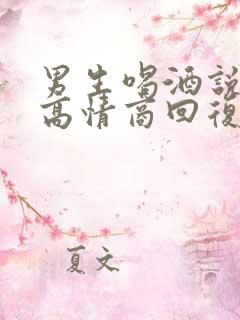 男生喝酒説
高情商回復
夏文